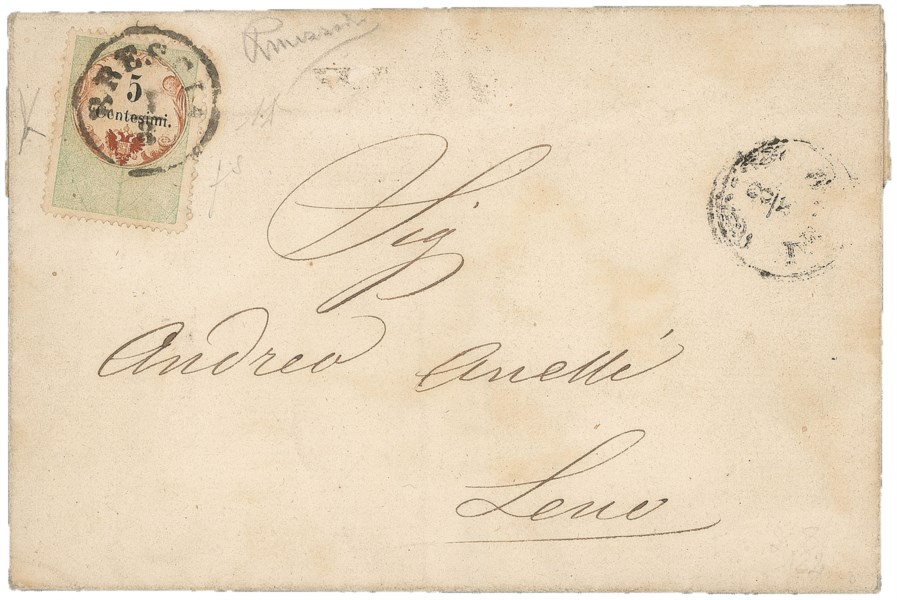 BRESCIA
5
Centesimi.
Sig
Andrea Anelli
Leno